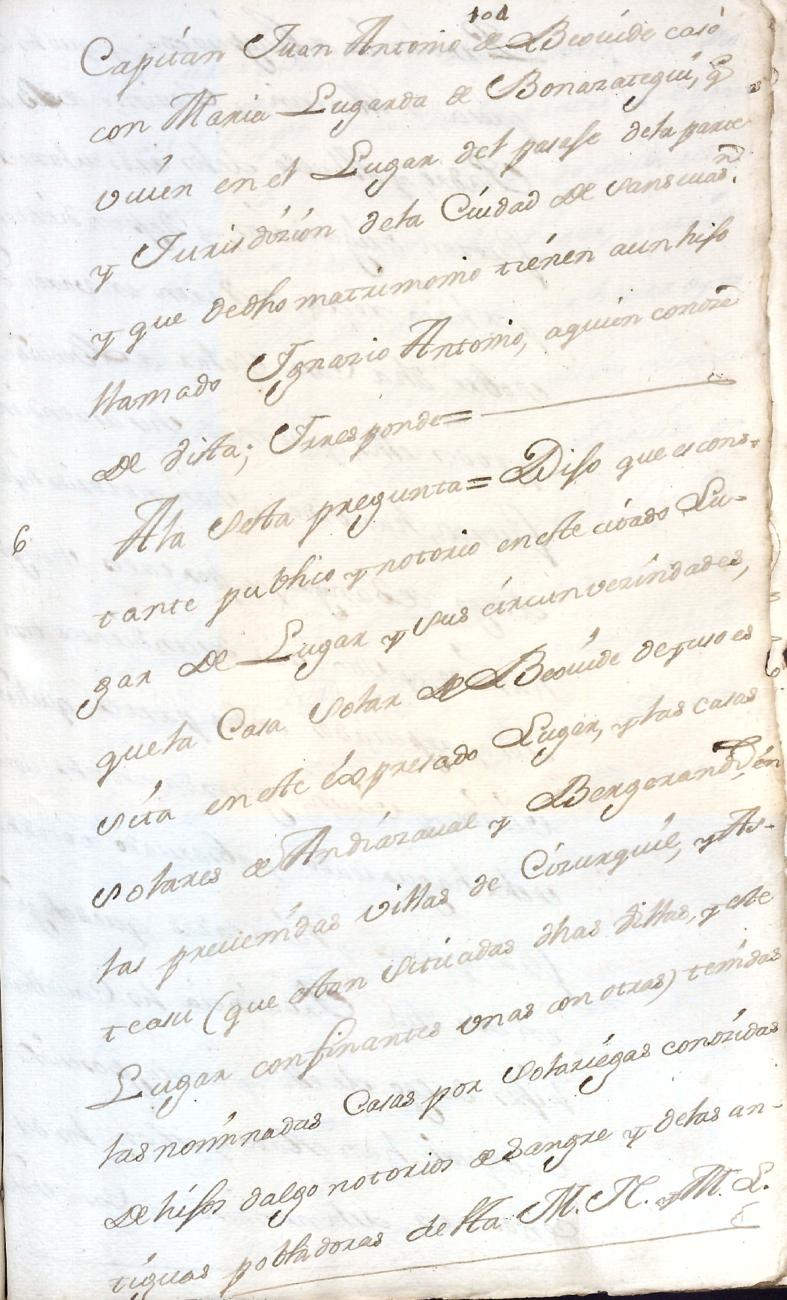 Capitan Juan Antonio de Beovide casó
con Maria Lugarda de Bonazategui, q̃
viven en el Lugar del pasase dela parte
y Jurisdizión dela Ciudad de Sansevas.n
y que dedho matrimonio tiénen aun hiso
llamado Ignazio Antonio, aquién conoze
de vista; Yresponde=
6
Ala Sesta pregunta= Diso que es cons-
tante publico y notorio eneste citado Lu-
gar de Lugar y sus circunvezindades,
quela Casa Solar de Beovide desuso es
sita eneste expresado Lugar, ylas casas
Solares de Andiazaval y , en
las prevenidas villas de Cizurquil, y As-
teasu (que estan Situadas dhas villas, y este
Lugar confinantes unas con otras) tenidas
las nominadas Casas por Solariégas conozidas
de hisos dalgo notorios de Sangre y delas an-
tiguas pobladoras desta M. N. y M. L.